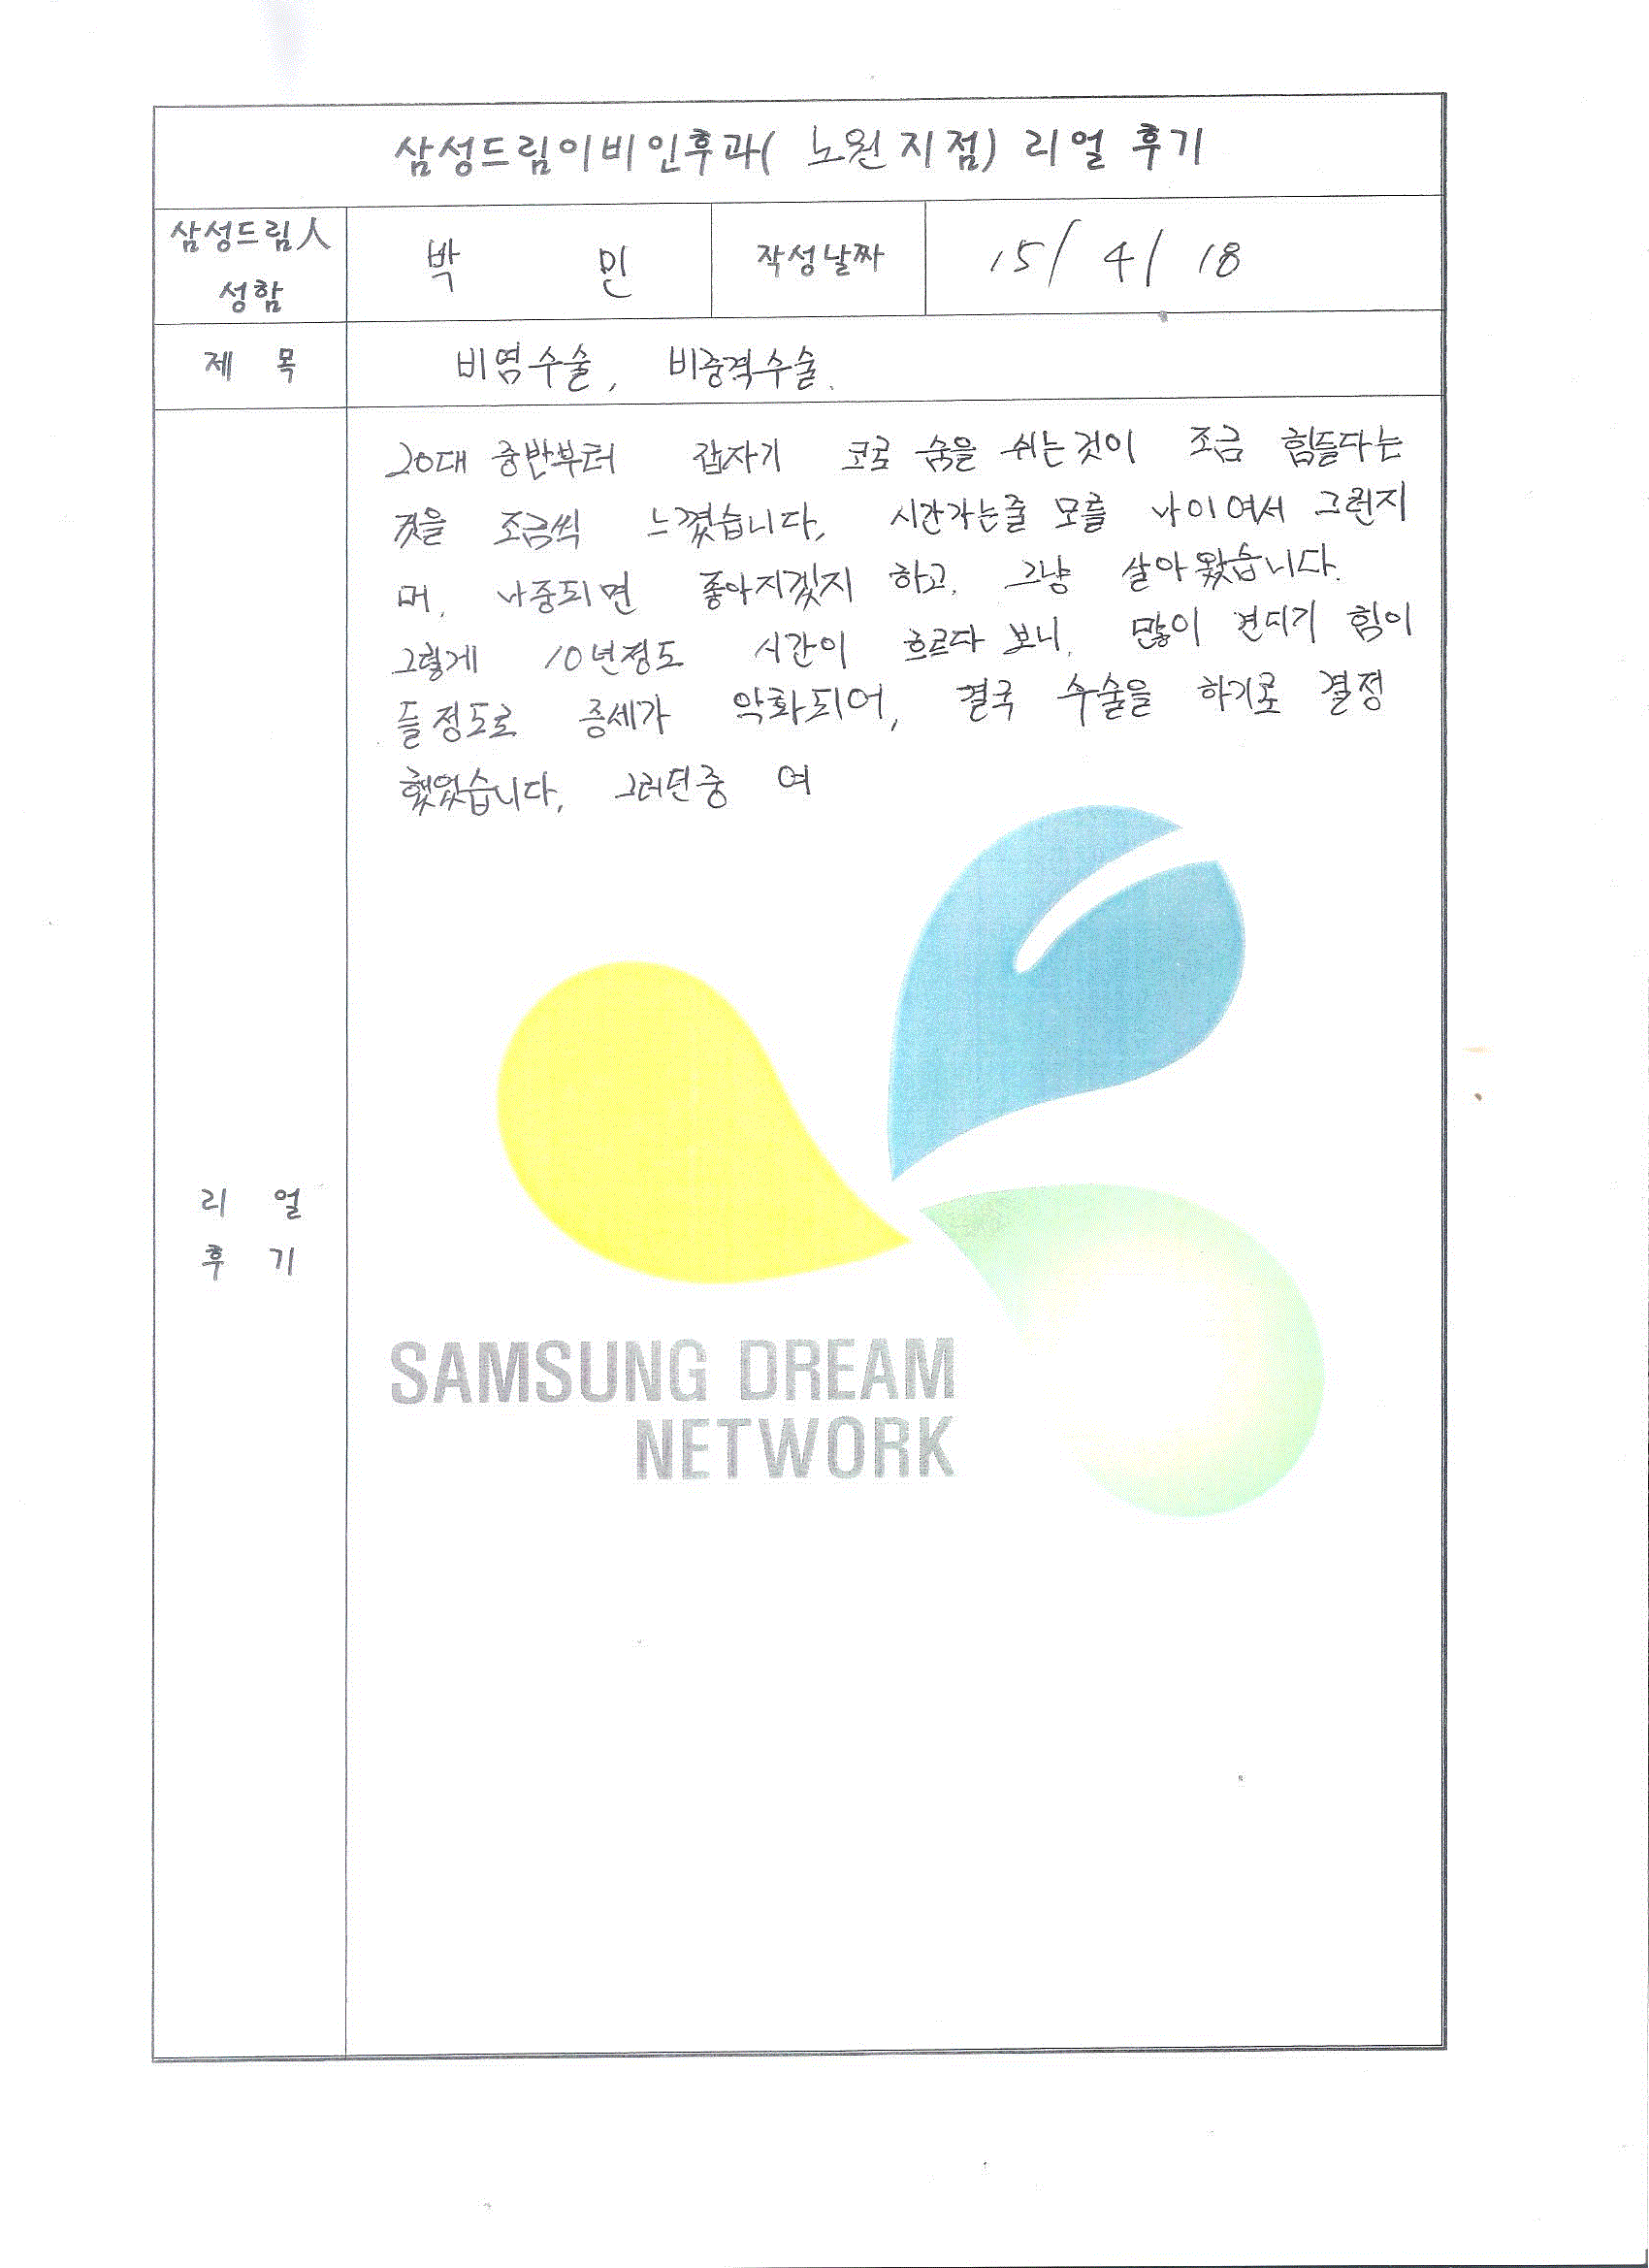 삼성드림이비인후과( 노원 지점) 리얼 후기
삼성드림人
성함
박 민
작성날짜
15/ 4/ 18
제 목
비염수술, 비중격수술.
20대 중반부터 갑자기 코로 숨을 쉬는것이 조금 힘들다는
것을 조금씩 느꼈습니다, 시간가는줄 모를 나이여서 그런지
머, 나중되면 좋아지겠지 하고, 그냥 살아왔습니다.
그렇게 10년정도 시간이 흐르다 보니, 많이 견디기 힘이
들정도로 증세가 악화되어, 결국 수술을 하기로 결정
했었습니다, 그러던중 여
리 얼
후 기
SAMSUNG DREAM
NETWORK